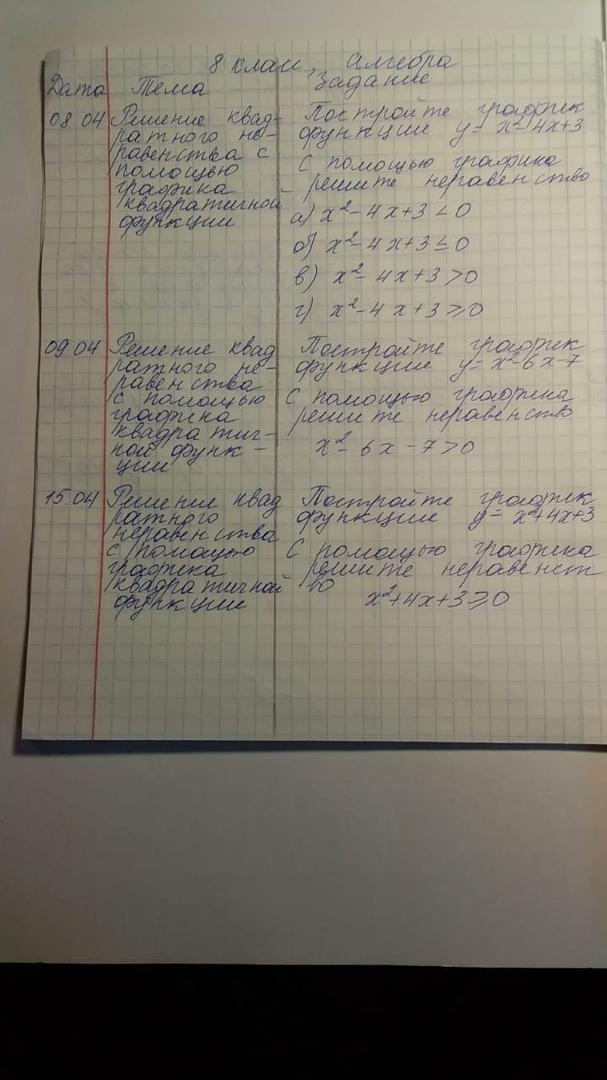 8 класс, алгебра
Дата Тема Задание
08.04 Решение квад-
ратного не-
равенства с
помощью
графика
квадратичной
функции
Постройте график
функции y = x²-4x+3
С помощью графика
решите неравенство
а) x²-4x+3<0
б) x²-4x+3≤0
в) x²-4x+3>0
г) x²-4x+3≥0
09.04 Решение квад
ратного не-
равенства
с помощью
графика
квадратич-
ной функ-
ции
Постройте график
функции y = x²-6x-7
С помощью графика
решите неравенство
x²-6x-7>0
15.04 Решение квад
ратного
неравенства
с помощью
графика
квадратичной
функции
Постройте график
функции y = x²+4x+3
С помощью графика
решите неравенст
во
x²+4x+3≥0